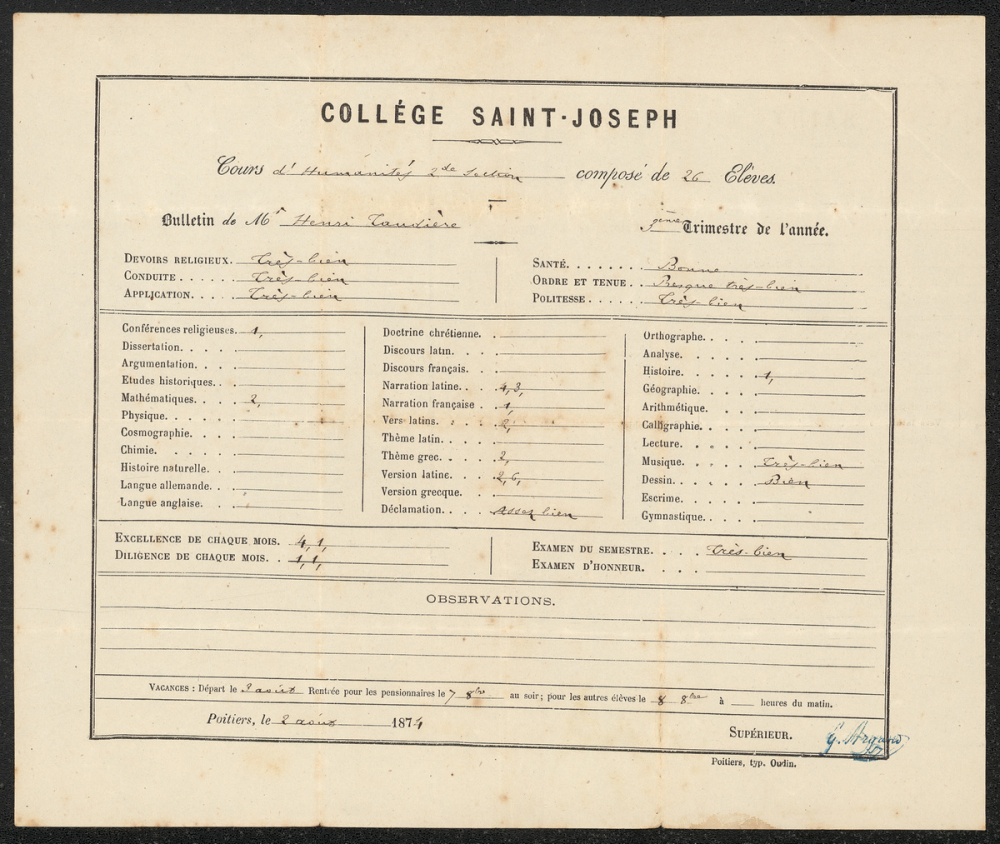 COLLÉGE SAINT-JOSEPH
Cours d'Humanités 2de Section composé de 26 Elèves.
Bulletin de Mr Henri Taudière 3ème Trimestre de l'année.
DEVOIRS RELIGIEUX. Très-bien
CONDUITE . . . . Très-bien
APPLICATION. . . . Très-bien
SANTÉ. . . . . . . Bonne
ORDRE ET TENUE . . Presque très-bien
POLITESSE . . . . . Très-bien
Conférences religieuses. 1,
Dissertation. . . . .
Argumentation. . . . .
Etudes historiques. . .
Mathématiques. . . . 2,
Physique. . . . .
Cosmographie. . . . .
Chimie. . . . .
Histoire naturelle. . .
Langue allemande. . .
Langue anglaise. . . .
Doctrine chrétienne. .
Discours latin. . . .
Discours français. . .
Narration latine. . . 4,3,
Narration française . . 1,
Vers latins. . . . 2,
Thème latin. . . . .
Thème grec. . . . 2,
Version latine. . . . 2,6,
Version grecque. . . .
Déclamation. . . . Assez bien
Orthographe. . . . .
Analyse. . . . .
Histoire. . . . . 1,
Géographie. . . . .
Arithmétique. . . . .
Calligraphie. . . . .
Lecture. . . . .
Musique. . . . . Très-bien
Dessin. . . . . Bien
Escrime. . . . .
Gymnastique. . . . .
EXCELLENCE DE CHAQUE MOIS. 4,1,
DILIGENCE DE CHAQUE MOIS. . 1,1,
EXAMEN DU SEMESTRE. . . . Très-bien
EXAMEN D'HONNEUR. . . .
OBSERVATIONS.
VACANCES : Départ le 3 août Rentrée pour les pensionnaires le 7 8bre au soir; pour les autres élèves le 8 8bre à heures du matin.
Poitiers, le 2 août 1874
SUPÉRIEUR.
Poitiers, typ. Oudin.